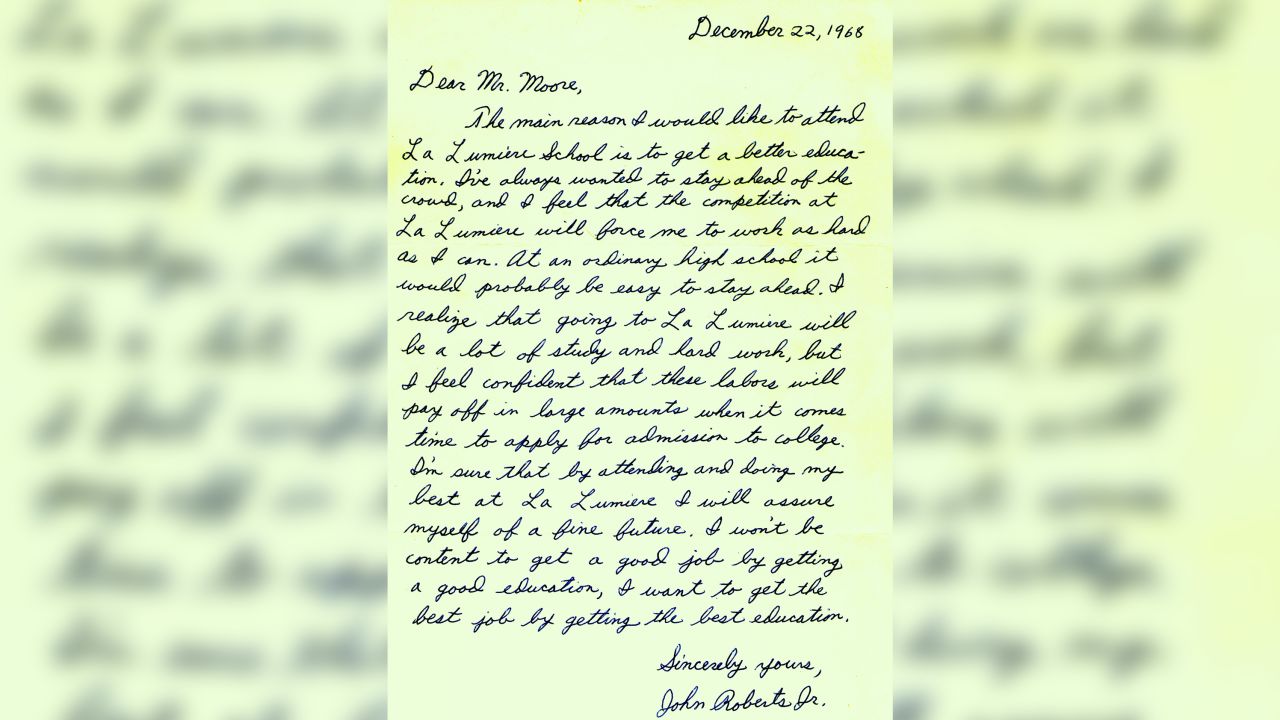 December 22, 1968
Dear Mr. Moore,
The main reason I would like to attend
La Lumiere School is to get a better educa-
tion. I've always wanted to stay ahead of the
crowd, and I feel that the competition at
La Lumiere will force me to work as hard
as I can. At an ordinary high school it
would probably be easy to stay ahead. I
realize that going to La Lumiere will
be a lot of study and hard work, but
I feel confident that these labors will
pay off in large amounts when it comes
time to apply for admission to college.
I'm sure that by attending and doing my
best at La Lumiere I will assure
myself of a fine future. I won't be
content to get a good job by getting
a good education, I want to get the
best job by getting the best education.
Sincerely yours,
John Roberts Jr.